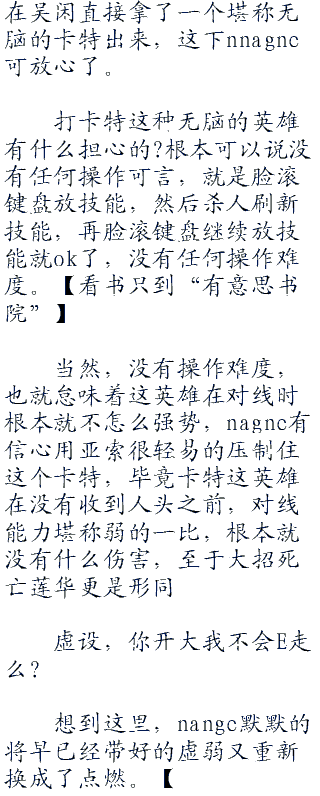 在吴闲直接拿了一个堪称无
脑的卡特出来，这下nnagnc
可放心了。
打卡特这种无脑的英雄
有什么担心的?根本可以说没
有任何操作可言，就是脸滚
键盘放技能，然后杀人刷新
技能，再脸滚键盘继续放技
能就ok了，没有任何操作难
度。【看书只到“有意思书
院”】
当然，没有操作难度，
也就怠味着这英雄在对线时
根本就不怎么强势，nagnc有
信心用亚索很轻易的压制住
这个卡特，毕竟卡特这英雄
在没有收到人头之前，对线
能力堪称弱的一比，根本就
没有什么伤害，至于大招死
亡莲华更是形同
虚设，你开大我不会E走
么？
想到这里，nangc默默的
将早已经带好的虚弱又重新
换成了点燃。【